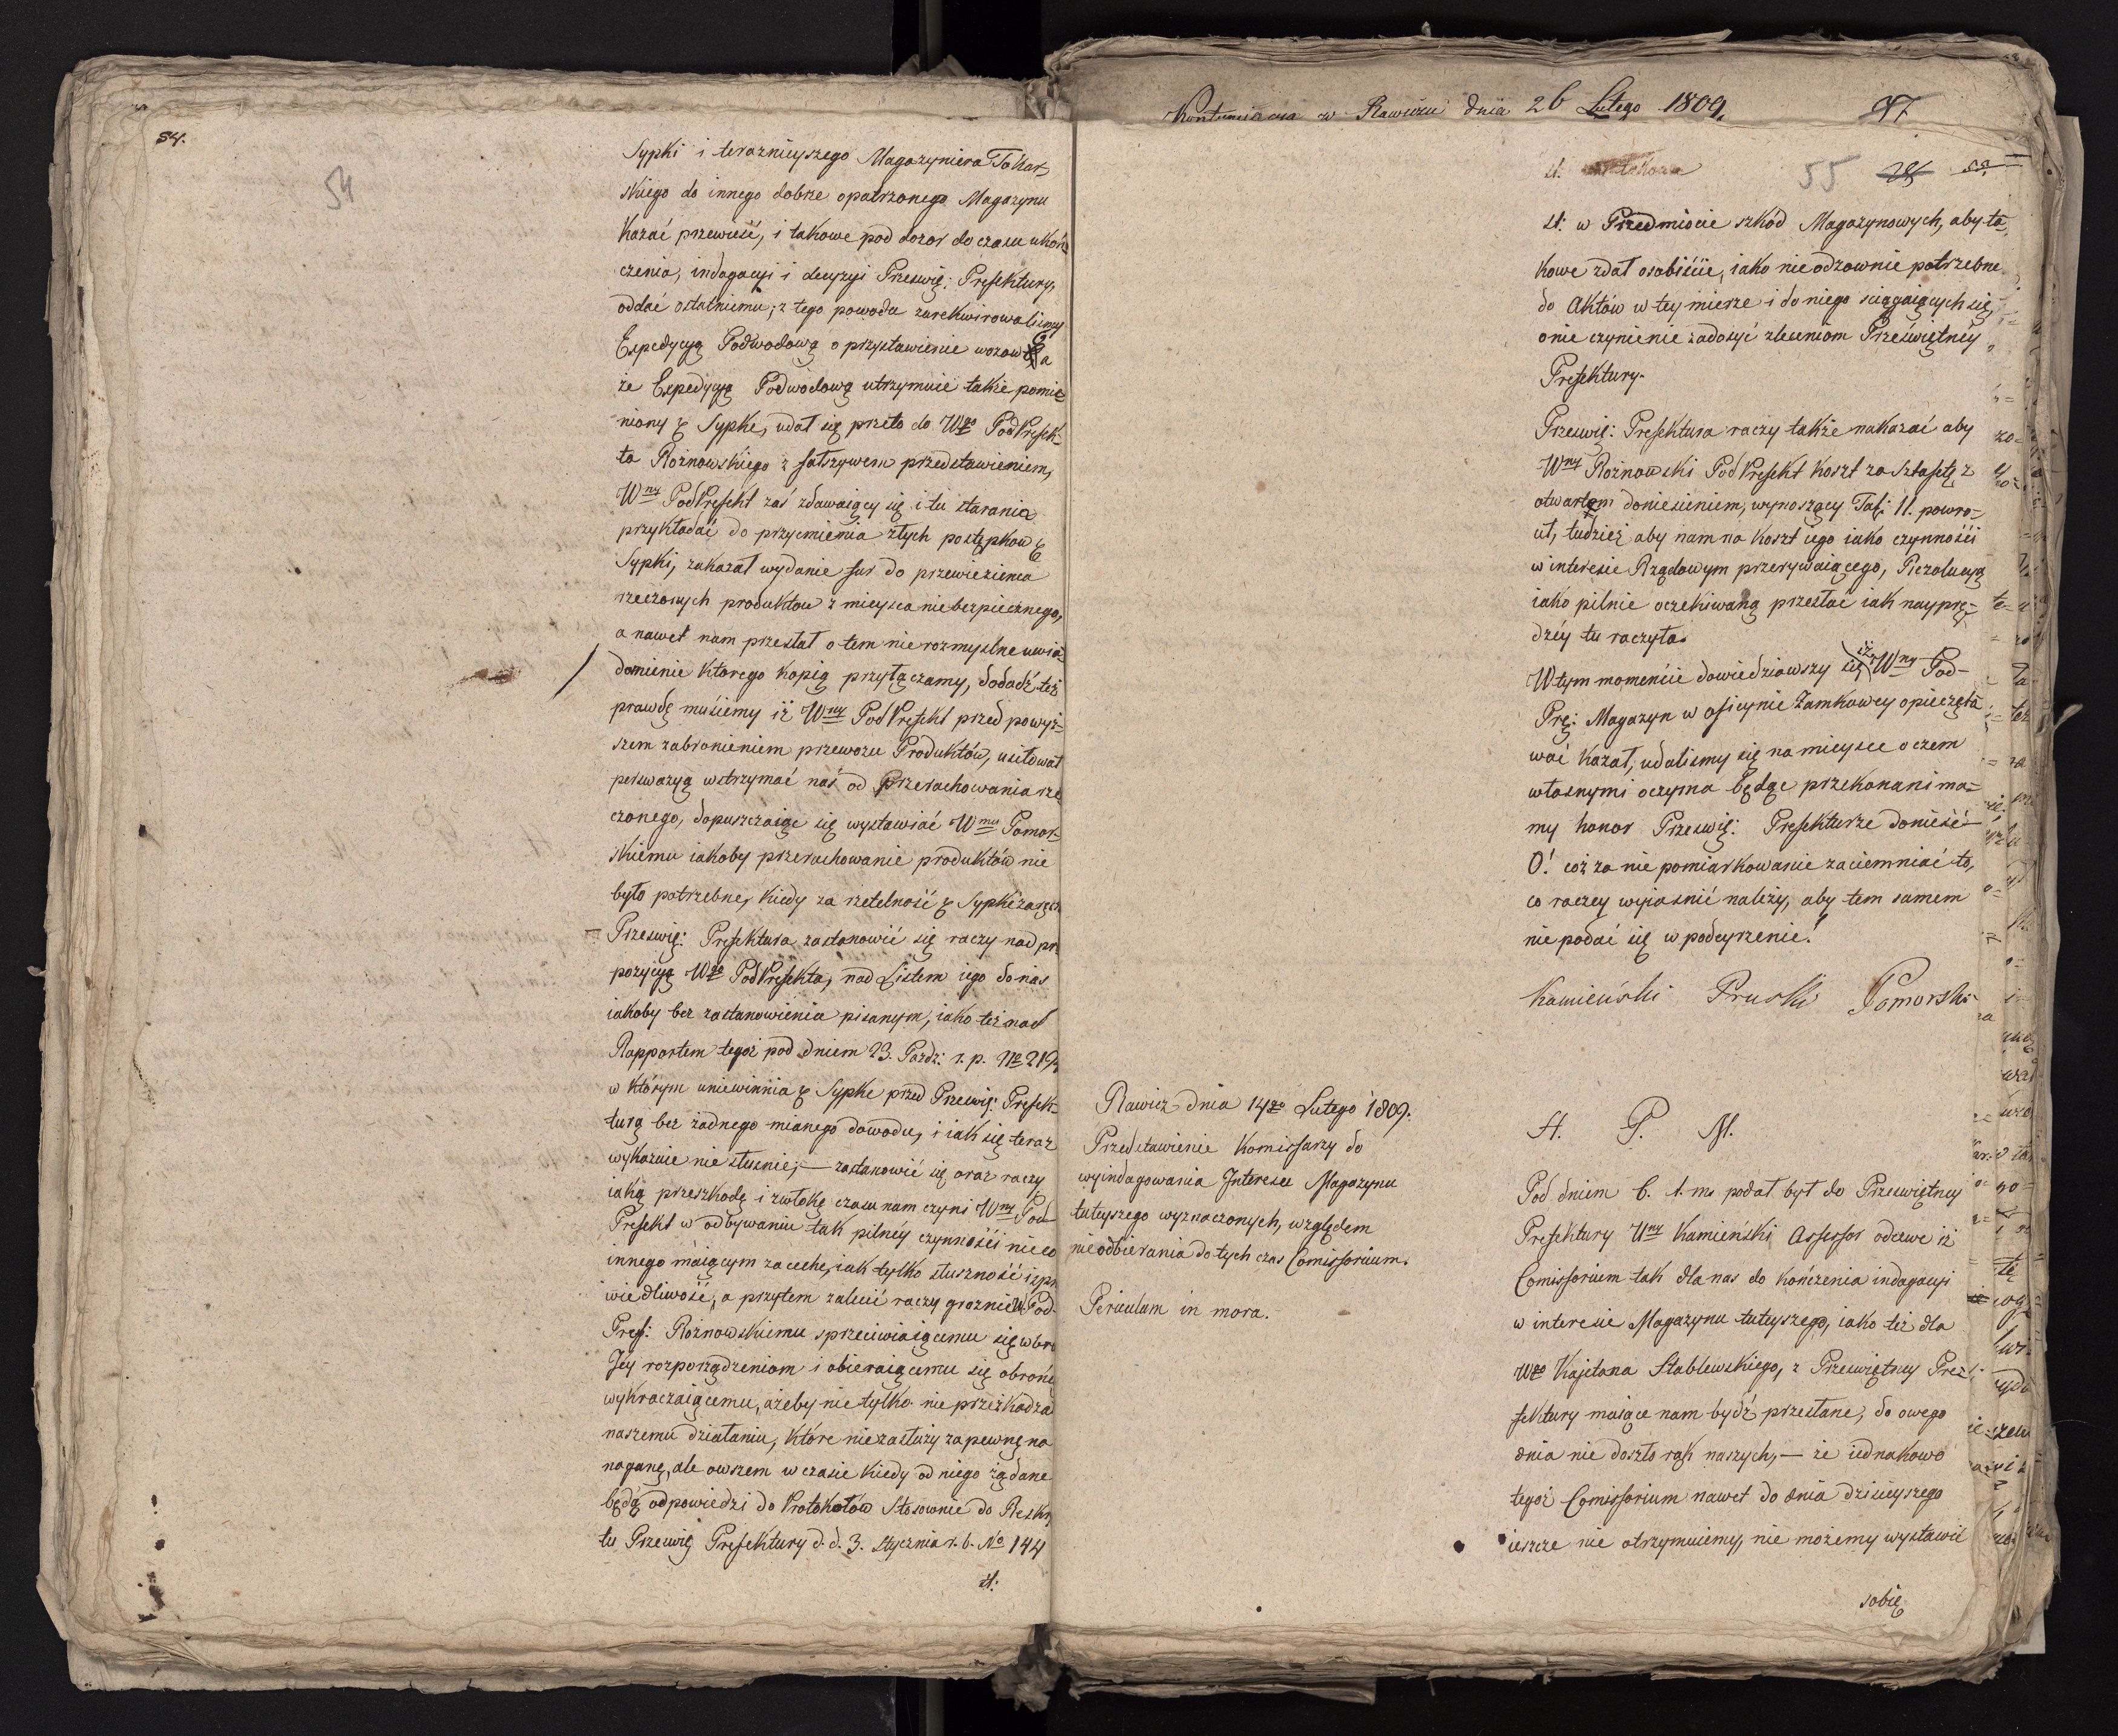 54.
54
Sypki i teraznieyszego Magazyniera Tokar-
skiego do innego dobrze opatrzonego Magazynu
kazać przewieść, i takowe pod dozor do czasu ukoń
czenia, indagacyi i decyzyi Przeswię: Prefektury,
oddać ostatniemu; z tego powodu zarekwirowalismy
Expedycyą Podwodową o przystawienie wozow 6 a
że Expedycyą Podwodową utrzymuie także pomie
niony Sypke, udał się przeto do Wgo PodPrefek-
ta Rożnowskiego z fałszywem przedstawieniem,
Wny PodPrefekt zaś zdawaiący się i tu starania
przykładać do przycmienia złych postępkow
Sypki, zakazał wydanie fur do przewiezienia
rzeczonych produktow z mieysca niebezpiecznego,
a nawet nam przesłał o tem nierozmyslne uwia-
domienie ktorego kopią przyłączamy, dodadź też
prawdę musiemy iż Wny PodPrefekt przed powyż-
szem zabronieniem przewozu Produktów, usiłował
perswazyą wstrzymać naś od Przerachowania rze
czonego, dopuszczaiąc się wystawiać Wmu Pomor-
skiemu iakoby przerachowanie produktów nie
było potrzebne, kiedy za rzetelność Sypki zaręcza
Przeswię: Prefektura zastanowić się raczy nad pro
pozycyą Wgo PodPrefekta, nad Listem iego do nas
iakoby bez zastanowienia pisanym, iako też nad
Rapportem tegoż pod dniem 23. Pazdz: r. p. No 219
w którym uniewinnia Sypke przed Przeswię: Prefek-
turą bez żadnego mianego dowodu, i iak się teraz
wykazuie nie słusznie, — zastanowić się oraz raczy
iaką przeszkodę i zwłokę czasu nam czyni Wny Pod
Prefekt w odbywaniu tak pilnéy czynności nic co
innego maiącym za cechę, iak tylko słuszność i spra
wiedliwość, a przytem zalecić raczy groznie W. Pod-
Pref: Rożnowskiemu sprzeciwiaiącemu się wbrew
Jéy rozporządzeniom i obieraiącemu się obrońcą
wykraczaiącemu, ażeby nie tylko nie przeszkadzał
naszemu działaniu, które nie zasłuży zapewnę na
naganę, ale owszem w czasie kiedy od niego żądane
będą odpowiedzi do Protokołów stosownie do Reskryp
tu Przeswię Prefektury d. d. 3. Stycznia r. b. No 144
it:
Kontumiacya w Rawiczu dnia 26 Lutego 1809.
55
it: w Przedmiocie szkód Magazynowych, aby ta-
kowe zdał osobiście, iako nieodzownie potrzebne
do Aktów w tey mierze i do niego sciągaiących się,
o nie czynienie zadosyć zleceniom Przeświętnéy
Prefektury.
Przeswię: Prefektura raczy także nakazać aby
Wny Rożnowski PodPrefekt koszt za Sztafetę z
otwartem doniesieniem, wynoszący Tal: 11. powro-
cił, tudzież aby nam na koszt iego iako czynności
w interesie Rządowym przerywaiącego, Rezolucyą
iako pilnie oczekiwaną przesłać iak nayprę-
dzéy tu raczyła.
W tym momencie dowiedziawszy się iż Wny Pod-
Pre: Magazyn w oficynie Zamkowey opieczęto-
wać kazał, udalismy się na mieysce o czem
własnymi oczyma będąc przekonani ma-
my honor Przeswię: Prefekturze donieść
O! coż za nie pomiarkowanie zaciemniać to,
co raczey wyiaśnić należy, aby tem samem
nie podać się w podeyrzenie!
Kamieński Pruski Pomorski
Rawicz dnia 14go Lutego 1809.
Przedstawienie Komissarzy do
wyindagowania Interesu Magazynu
tuteyszego wyznaczonych, względem
nieodbierania do tych czas Comissorium.
Periculum in mora.
A. P. M.
Pod dniem 6. t. m. podał był do Przeswiętney
Prefektury Uny Kamieński Assessor odezwę iż
Comissorium tak dla nas do kończenia indagacyi
w interesie Magazynu tuteyszego, iako też dla
Wgo Kajetana Stablewskiego, z Przeswiętney Pre-
fektury maiące nam bydź przesłane, do owego
dnia nie doszło rąk naszych, — że iednakowo
tegoż Comissorium nawet do dnia dzisieyszego
ieszcze nie otrzymuiemy, nie możemy wystawić
sobię